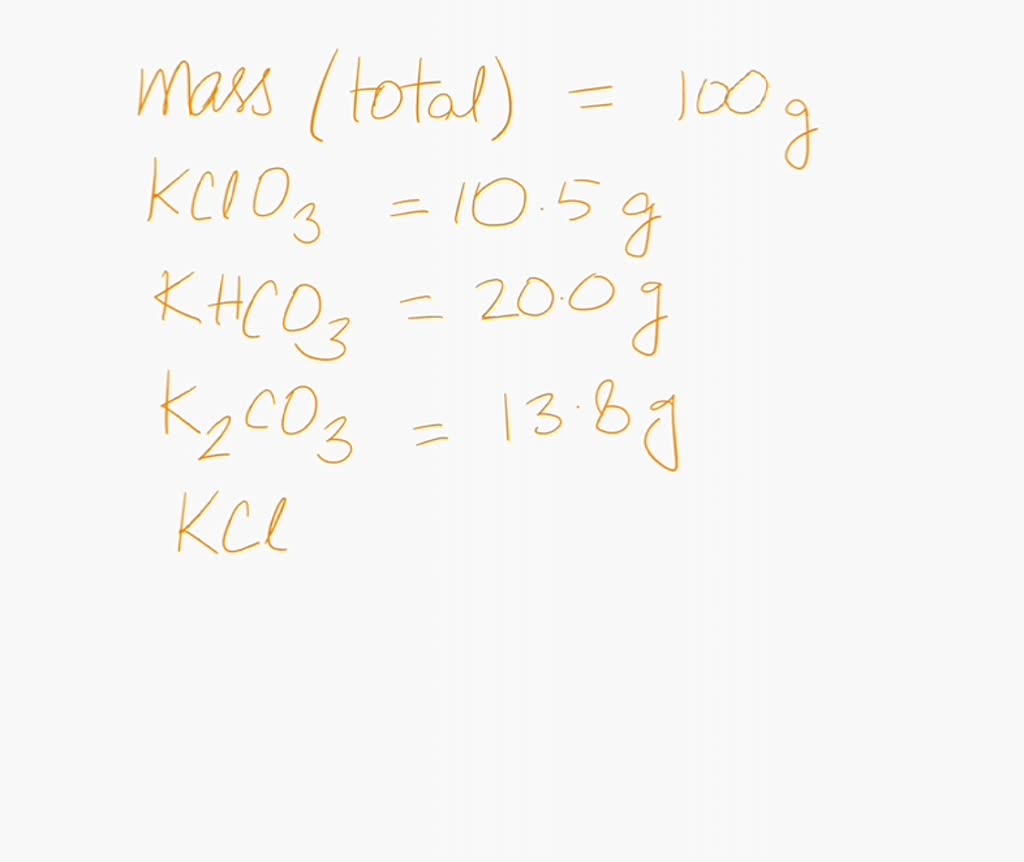 Mass (total) = 100g
KClO₃ = 10.5 g
KHCO₃ = 20.0 g
K₂CO₃ = 13.8g
KCl